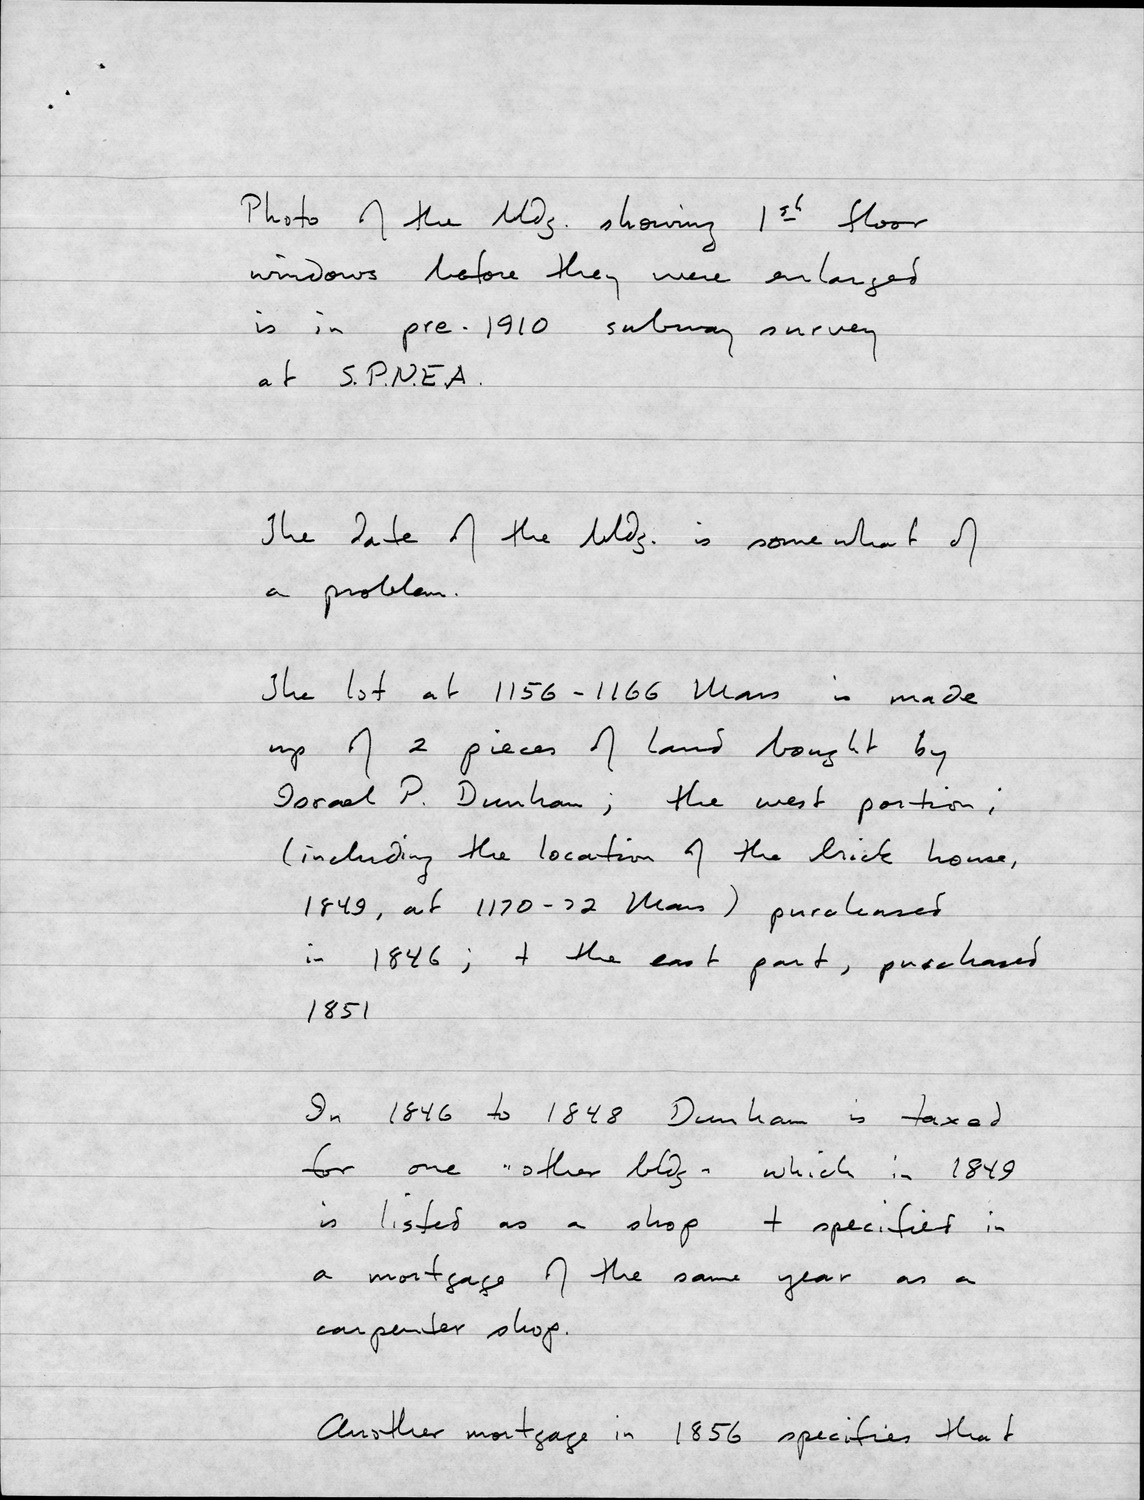 Photo of the bldg. showing 1st floor
windows before they were enlarged
is in pre-1910 subway survey
at S.P.N.E.A.
The date of the bldg. is somewhat of
a problem.
The lot at 1156-1166 Mass is made
up of 2 pieces of land bought by
Israel P. Dunham; the west portion;
(including the location of the brick house,
1849, at 1170-72 Mass) purchased
in 1846; + the east part, purchased
1851
In 1846 to 1848 Dunham is taxed
for one "other bldg" which in 1849
is listed as a shop + specified in
a mortgage of the same year as a
carpenter shop.
Another mortgage in 1856 specifies that